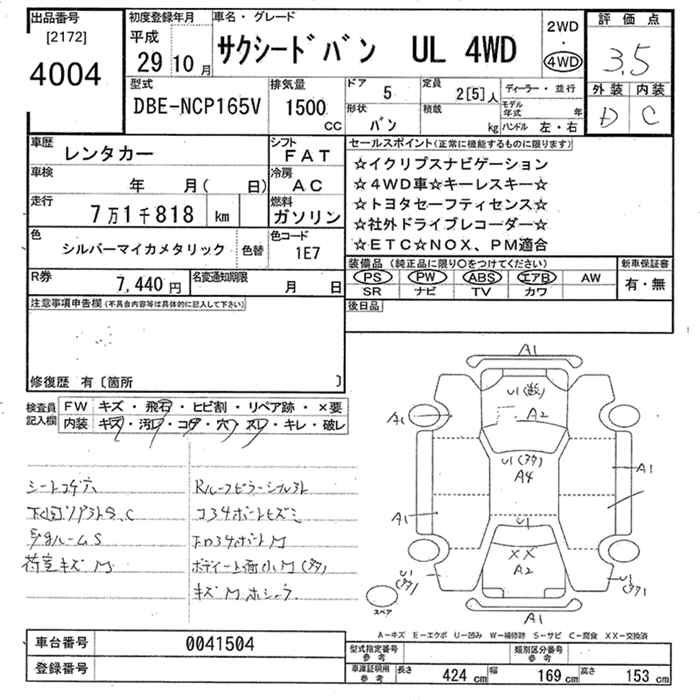 出品番号
[2172]
4004
初度登録年月
平成
29 10 月
車名・グレード
サクシードバン UL 4WD
2WD
・
4WD
評価点
3.5
外装 内装
D C
型式
DBE-NCP165V
排気量
1500
CC
ドア 5
形状 バン
定員 2[5]人
積載 kg
ディーラー・並行
モデル年式 年
ハンドル 左・右
車歴 レンタカー
シフト FAT
車検 年 月( 日)
冷房 AC
走行 7万1千818 km
燃料 ガソリン
色 シルバーマイカメタリック 色替
色コード 1E7
R券 7,440円
名変通知期限 月 日
セールスポイント(正常に機能するものに限ります)
☆イクリプスナビゲーション
☆4WD車☆キーレスキー☆
☆トヨタセーフティセンス☆
☆社外ドライブレコーダー☆
☆ETC☆NOX、PM適合
装備品 (純正品に限り○をつけてください)
PS PW ABS エアB AW
SR ナビ TV カワ
新車保証書
有・無
後日品
注意事項申告欄(不具合内容等は具体的に記入して下さい)
修復歴 有〔箇所 〕
検査員記入欄
FW キズ・飛石・ヒビ割・リペア跡・×要
内装 キズ・汚レ・コゲ・穴・スレ・キレ・破レ
シートコゲ穴
荷室キズM
キズM ホシュウ
A1
U1
A2
A1
U1
A4
A1
A1
U1
XX
A2
U1
U1
A1
スペア
A-キズ E-エクボ U-凹み W-補修跡 S-サビ C-腐食 XX-交換済
車台番号 0041504
登録番号
型式指定番号 参考
類別区分番号 参考
車庫証明用 参考
長さ 424 cm 幅 169 cm 高さ 153 cm